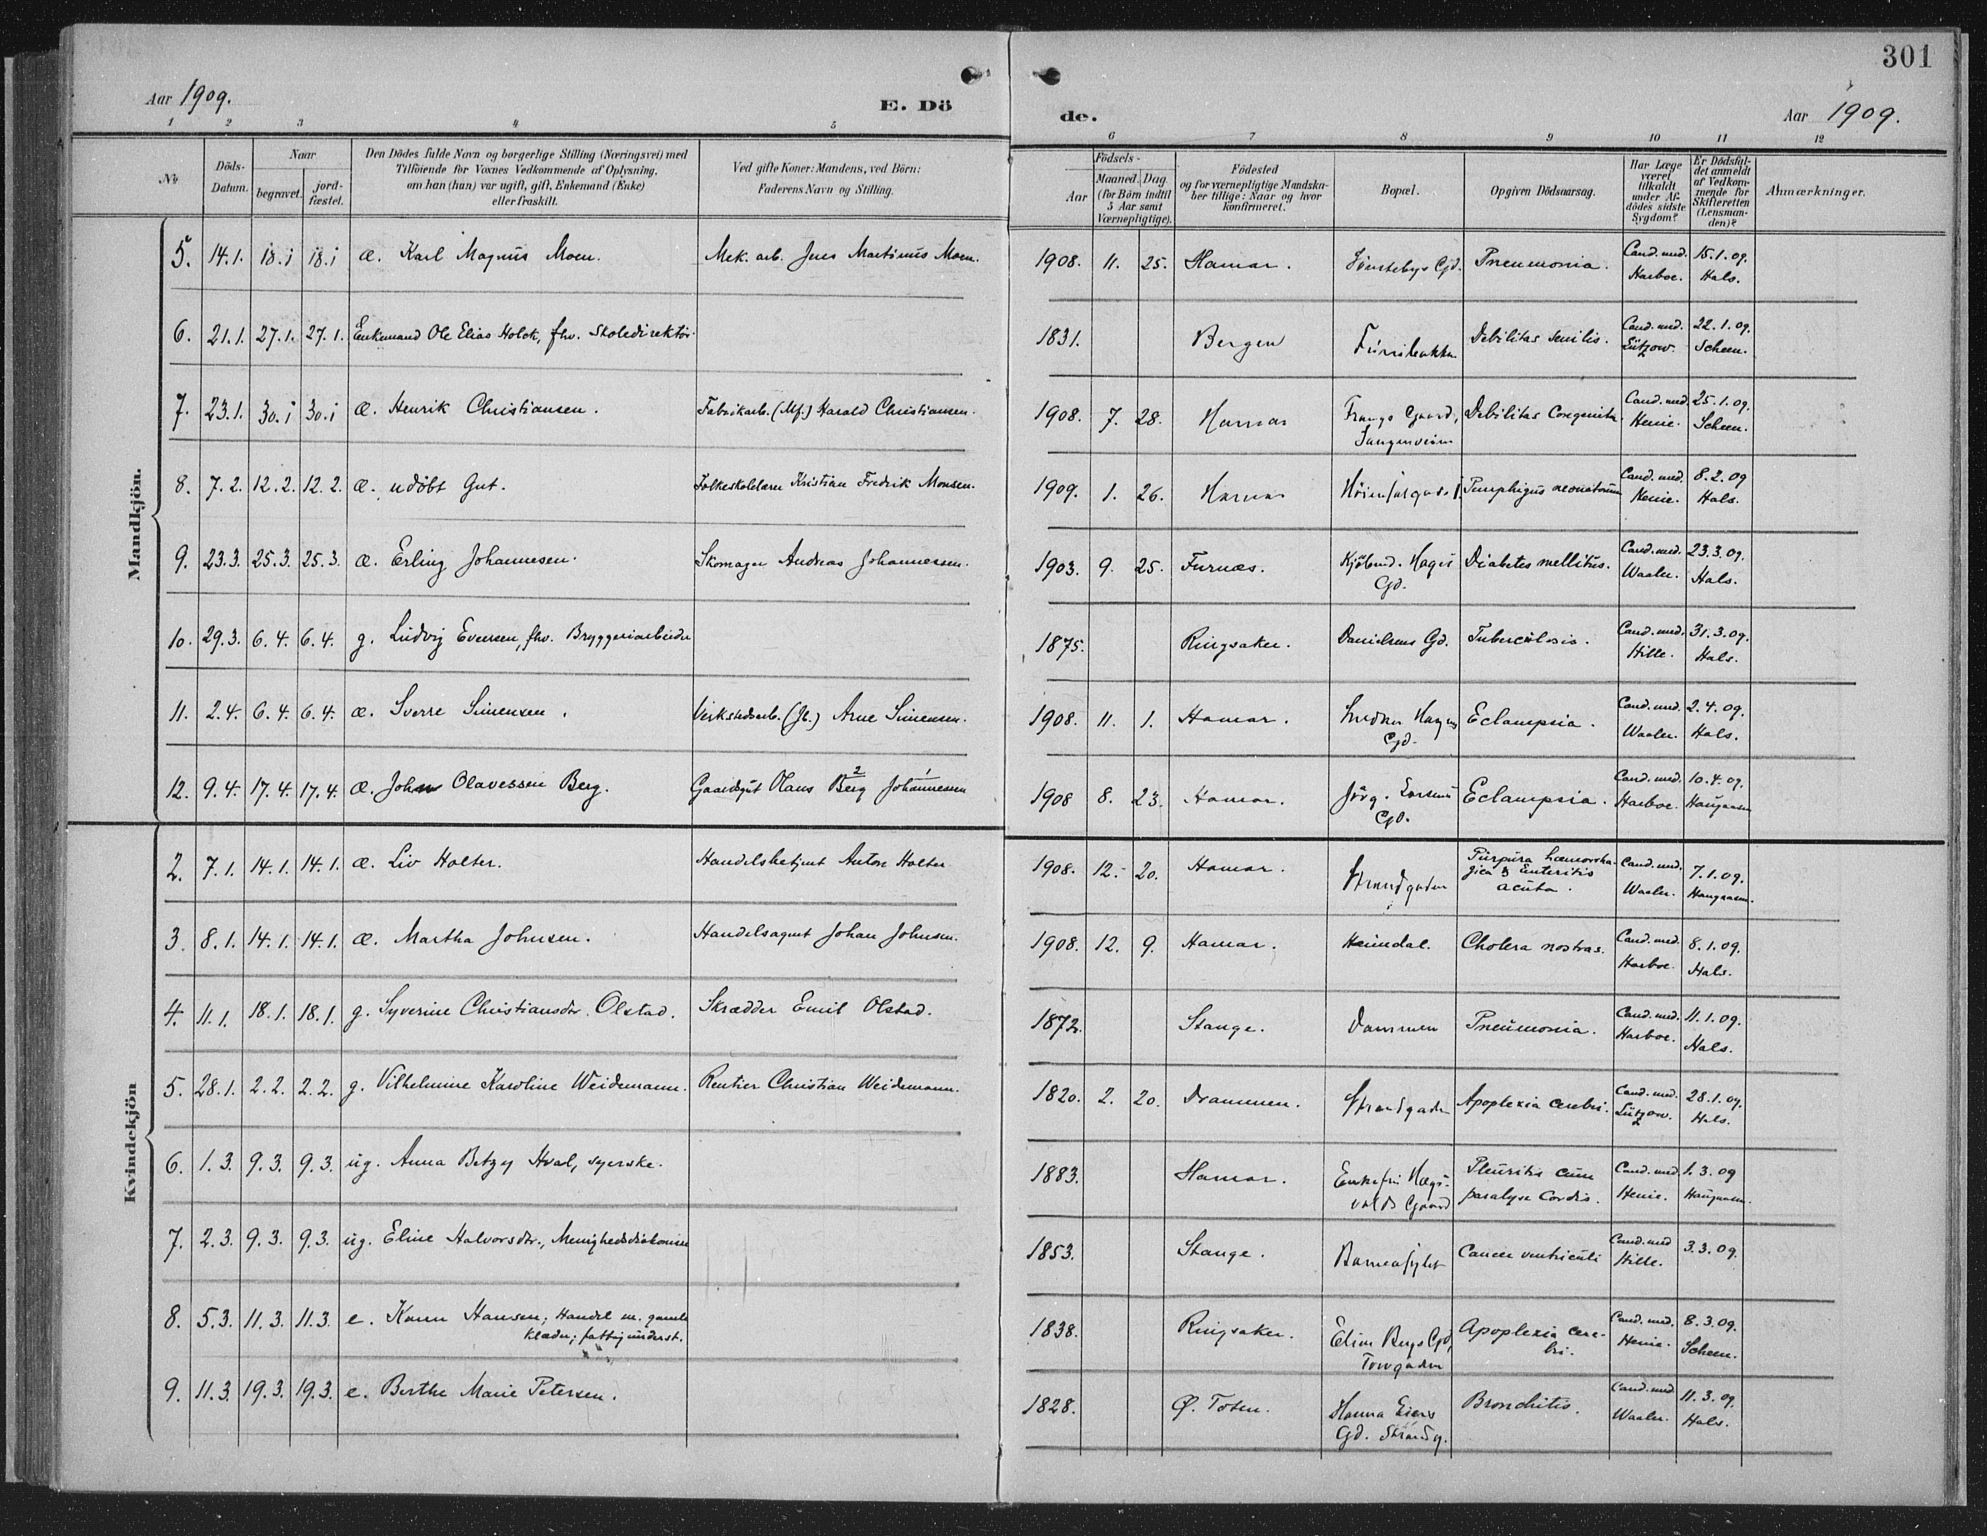 301
Aar 1909.
E. Dö
de.
Aar 1909.
1 2 3 4 5 6 7 8 9 10 11 12
No
Döds-Datum.
Naar
begravet.
jord-fæstet.
Den Dödes fulde Navn og borgerlige Stilling (Næringsvei) med
Tilföiende for Voxnes Vedkommende af Oplysning,
om han (hun) var ugift, gift, Enkemand (Enke)
eller fraskilt.
Ved gifte Koner: Mandens, ved Börn:
Faderens Navn og Stilling.
Födsels-
Aar
Maaned. Dag
(for Börn indtil
5 Aar samt
Værnepligtige).
Födested
og for værnepligtige Mandska-
ber tillige: Naar og hvor
konfirmeret.
Bopæl.
Opgiven Dödsaarsag.
Har Læge
været
tilkaldt
under Af-
dödes sidste
Sygdom?
Er Dödsfal-
det anmeldt
af Vedkom-
mende for
Skifteretten
(Lensman-
den)?
Anmærkninger.
Mandkjön.
5. 14.1. 18.1 18.1 æ. Karl Magnus Moen. Mek. arb. Jens Martinus Moen. 1908. 11. 25. Hamar. Gd. Pneumonia. Cand. med. Harboe. 15.1.09. Hals.
6. 21.1. 27.1. 27.1. Enkemand Ole Elias Holck, fhv. Skoledirektör. 1831. Bergen Furubakken Debilitas senilis. Cand. med. Lützow. 22.1.09. Scheen.
7. 23.1. 30.1 30.1 æ. Henrik Christiansen. Fabrikarb. (Mf.) Harald Christiansen. 1908. 7. 28. Hamar Frangs Gaard, Debilitas Congenita Cand. med. Henie. 25.1.09. Scheen.
8. 7.2. 12.2. 12.2. æ. udöbt Gut. Folkeskolelærer Kristian Fredrik Monsen. 1909. 1. 26. Hamar Pemphigus neonatorum Cand. med. Henie. 8.2.09 Hals.
9. 23.3. 25.3. 25.3. æ. Erling Johannesen. Skomager Andreas Johannessen. 1903. 9. 25. Furnæs. Kjöbmd. Gd. Diabetes mellitus. Cand. med. Waaler. 23.3.09. Hals.
10. 29.3. 6.4. 6.4. g. Ludvig Evensen, fhv. Bryggeriarbeider 1875. Ringsaker. Danielsens Gd. Tuberculosis. Cand. med. Hille. 31.3.09. Hals.
11. 2.4. 6.4. 6.4. æ. Sverre Simensen. Verkstedsarb. (Jb.) Arne Simensen. 1908. 11. 1. Hamar. Gd. Eclampsia. Cand. med. Waaler. 2.4.09. Hals.
12. 9.4. 17.4. 17.4. æ. John Olavessen Berg. Gaardsgut Olaus Berg 2 Johannessen 1 1908 8. 23. Hamar. Jörg. Larsens Gd. Eclampsia. Cand. med. Harboe. 10.4.09. Haugaasen
Kvindekjön
2. 7.1. 14.1. 14.1. æ. Liv Holter. Handelsbetjent Anton Holter 1908. 12. 20. Hamar. Strandgaden Purpura hæmorrhagica & Enteritis acuta. Cand. med. Waaler. 7.1.09. Haugaasen.
3. 8.1. 14.1. 14.1. æ. Martha Johnsen. Handelsagent Johan Johnsen. 1908. 12. 9. Hamar. Heimdal. Cholera nostras. Cand. med. Harboe. 8.1.09. Hals.
4. 11.1. 18.1. 18.1. g. Syverine Christiansdr. Olstad. Skrædder Emil Olstad. 1872. Stange. Dammen Pneumonia. Cand. med. Harboe. 11.1.09. Hals.
5. 28.1. 2.2. 2.2. g. Vilhelmine Karoline Weidemann. Rentier Christian Weidemann. 1820. 2. 20. Drammen. Strandgaden Apoplexia cerebri. Cand. med. Lützow. 28.1.09. Hals.
6. 1.3. 9.3. 9.3. ug. Anna Betzy Hval, syerske. 1883. Hamar. Enkefru Hægsvalds Gaard Pleuritis cum paralyse Cordis. Cand. med Henie. 1.3.09 Haugaasen.
7. 2.3. 9.3. 9.3. ug. Eline Halvorsdr., Menighedsdiakonisse 1853. Stange. Barneasylet Cancer ventriculi Cand. med Hille. 3.3.09.
8. 5.3. 11.3. 11.3. e. Karen Hansen; Handel m. gamle klæder; fattigunderst. 1838. Ringsaker. Bergs Gd, Torvgaden Apoplexia cerebri. Cand. med. Henie. 8.3.09. Scheen.
9. 11.3. 19.3. 19.3. e. Berthe Marie Petersen. 1828. Ø. Toten. Hanna Gd. Strandg. Bronchitis. Cand. med Waaler. 11.3.09. Hals.